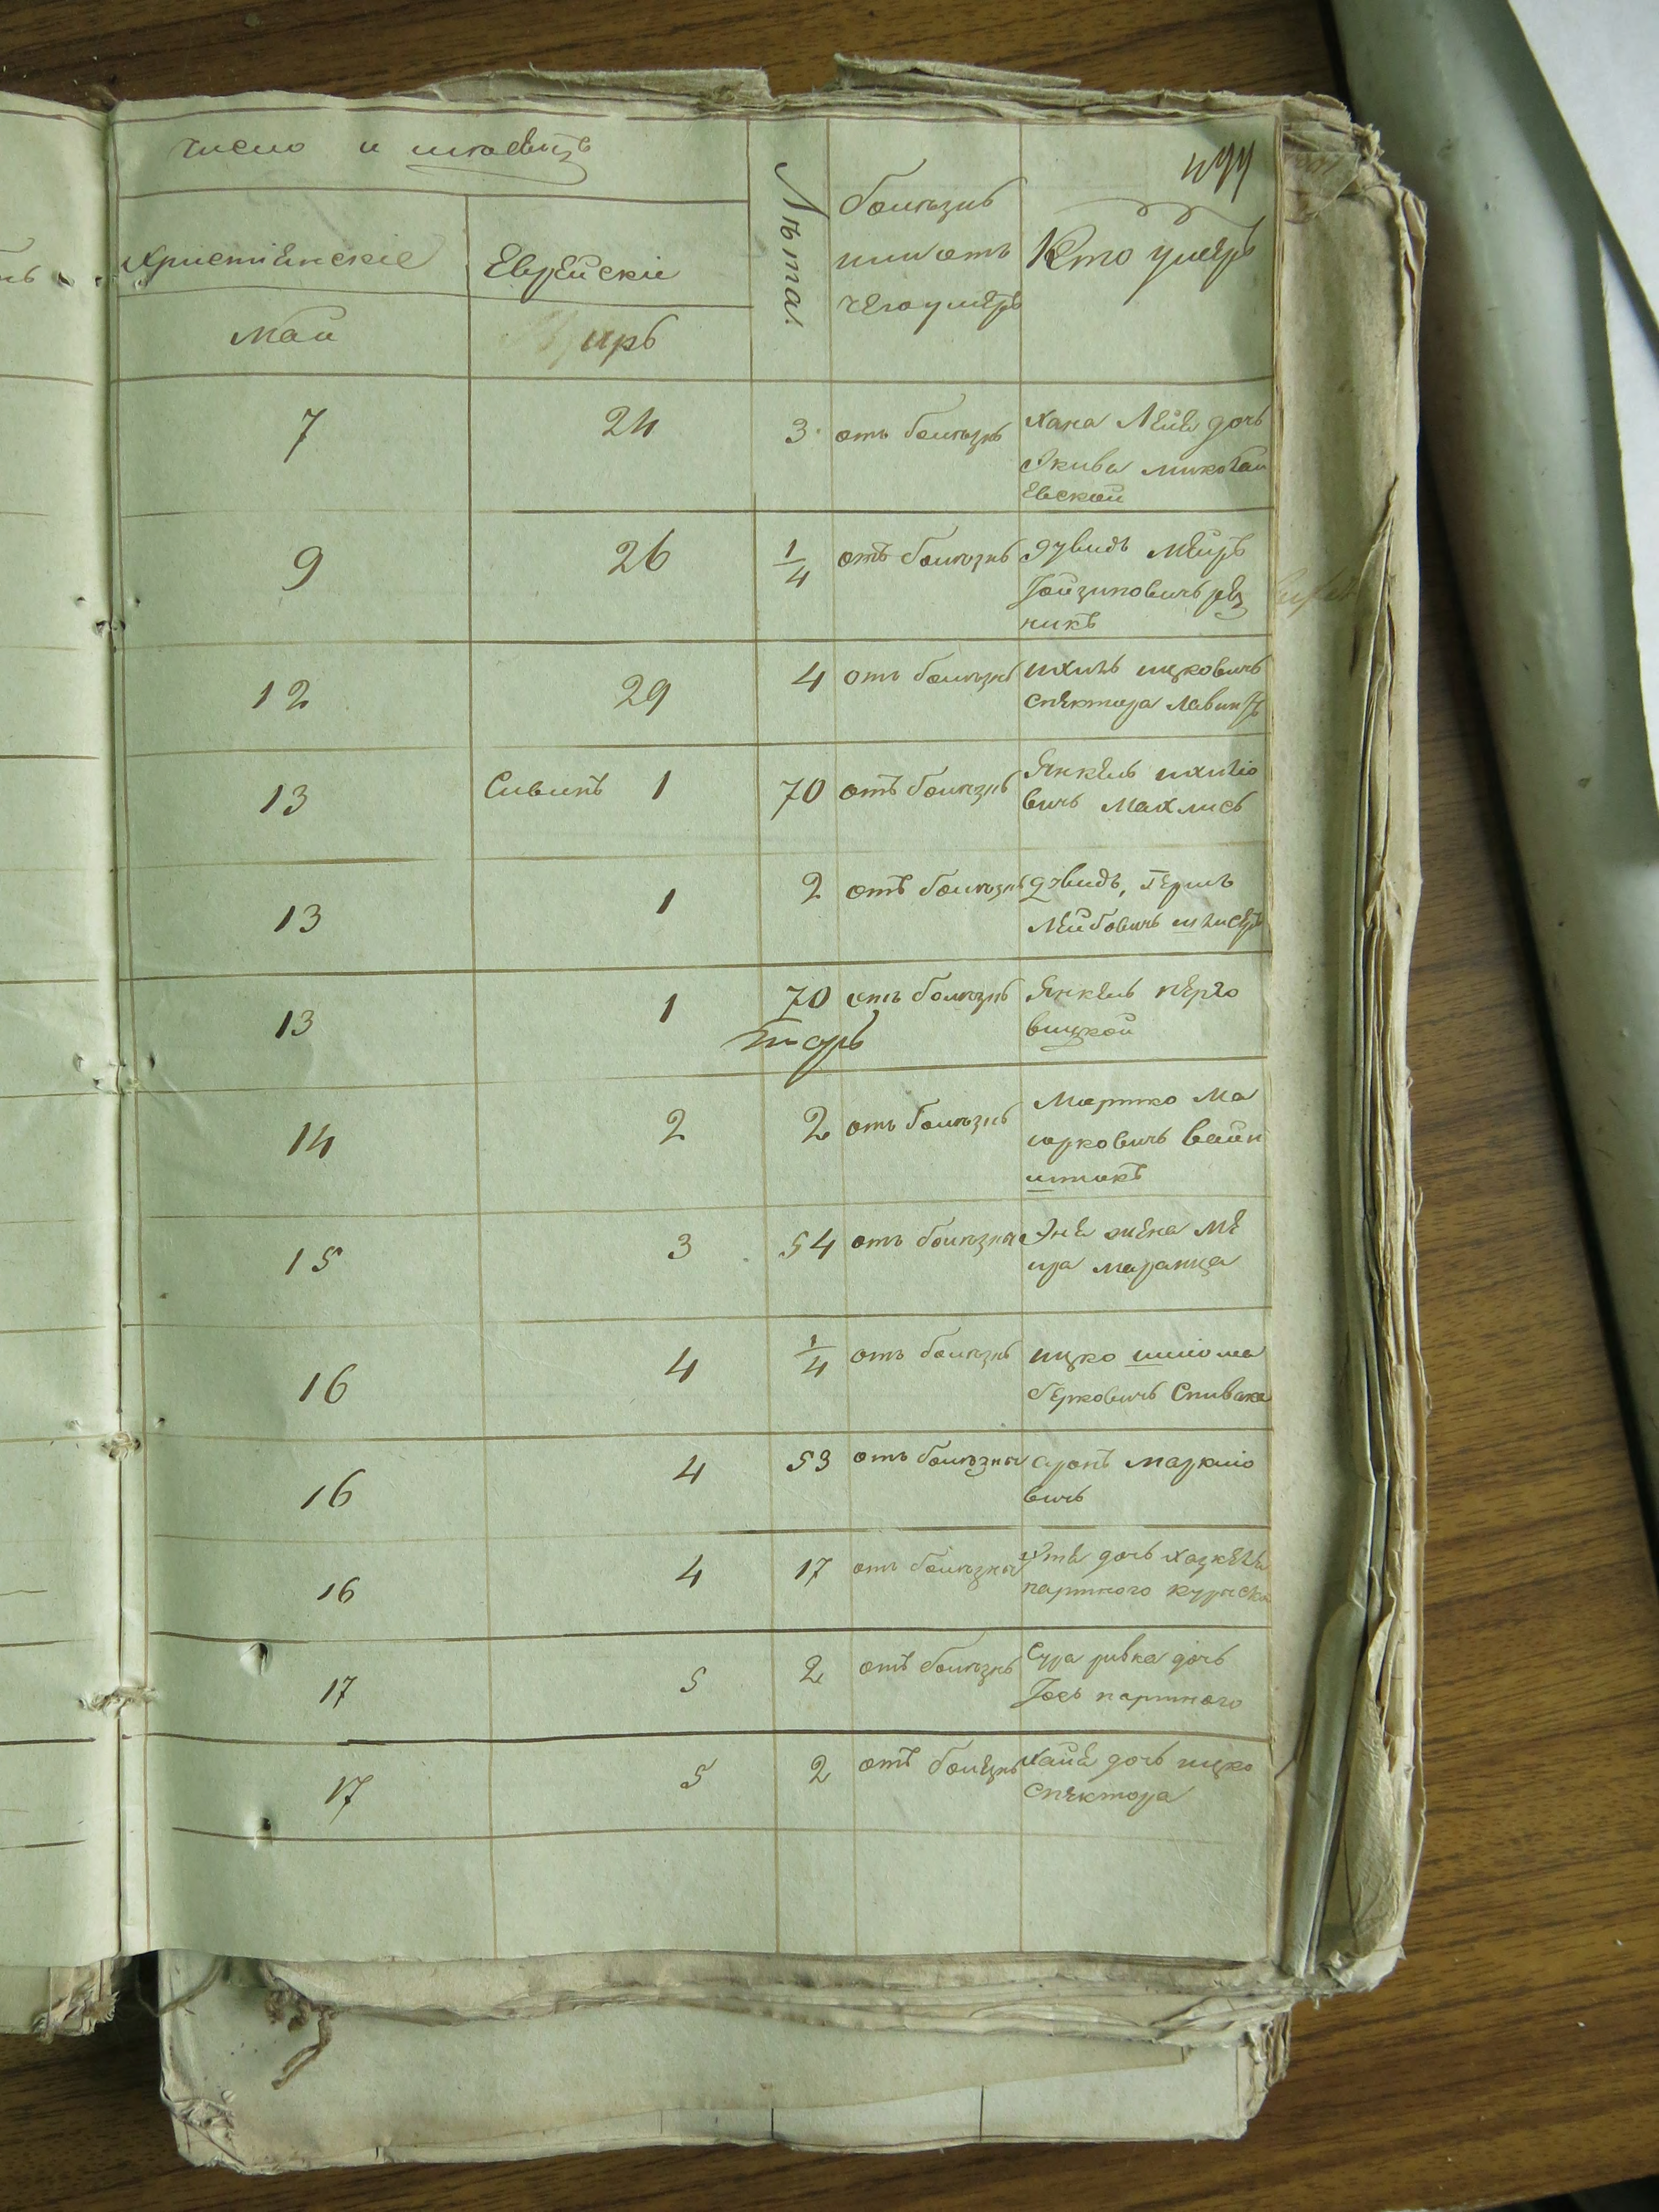 число и месяцъ
Христіанскіе
Еврейскіе
Лѣта.
болѣзнь
или отъ
чего умеръ
Кто умеръ
май
иръ
7 24 3 отъ болѣзнь хана лея дочь
Акива николай
евской
9 26 1/4 отъ болѣзнь Дувидъ меиръ
Іойзиповичь рез
никъ
12 29 4 отъ болѣзнь ихиль ицковичь
спектора
13 Сивинъ 1 70 отъ болѣзнь Янкель ихиліо
вичь Махлисъ
13 1 2 отъ болѣзнь Дувидъ, герш
лейбовичь шлисеръ
13 1 70 отъ болѣзнь Янкель перго
вицкой
14 2 2 отъ болѣзнь Мортко ма
иорковичь вайн
штокъ
15 3 54 отъ болѣзни Энея жена ме
ира маранца
16 4 1/4 отъ болѣзнь ицко шліома
берковичь Спивака
16 4 53 отъ болѣзни аронъ маркио
вичь
16 4 17 отъ болѣзни дочь хазкеля
партного
17 5 2 отъ болѣзнь Сура ривка дочь
Іось партного
17 5 2 отъ болезнь хаия дочь ицко
спектора